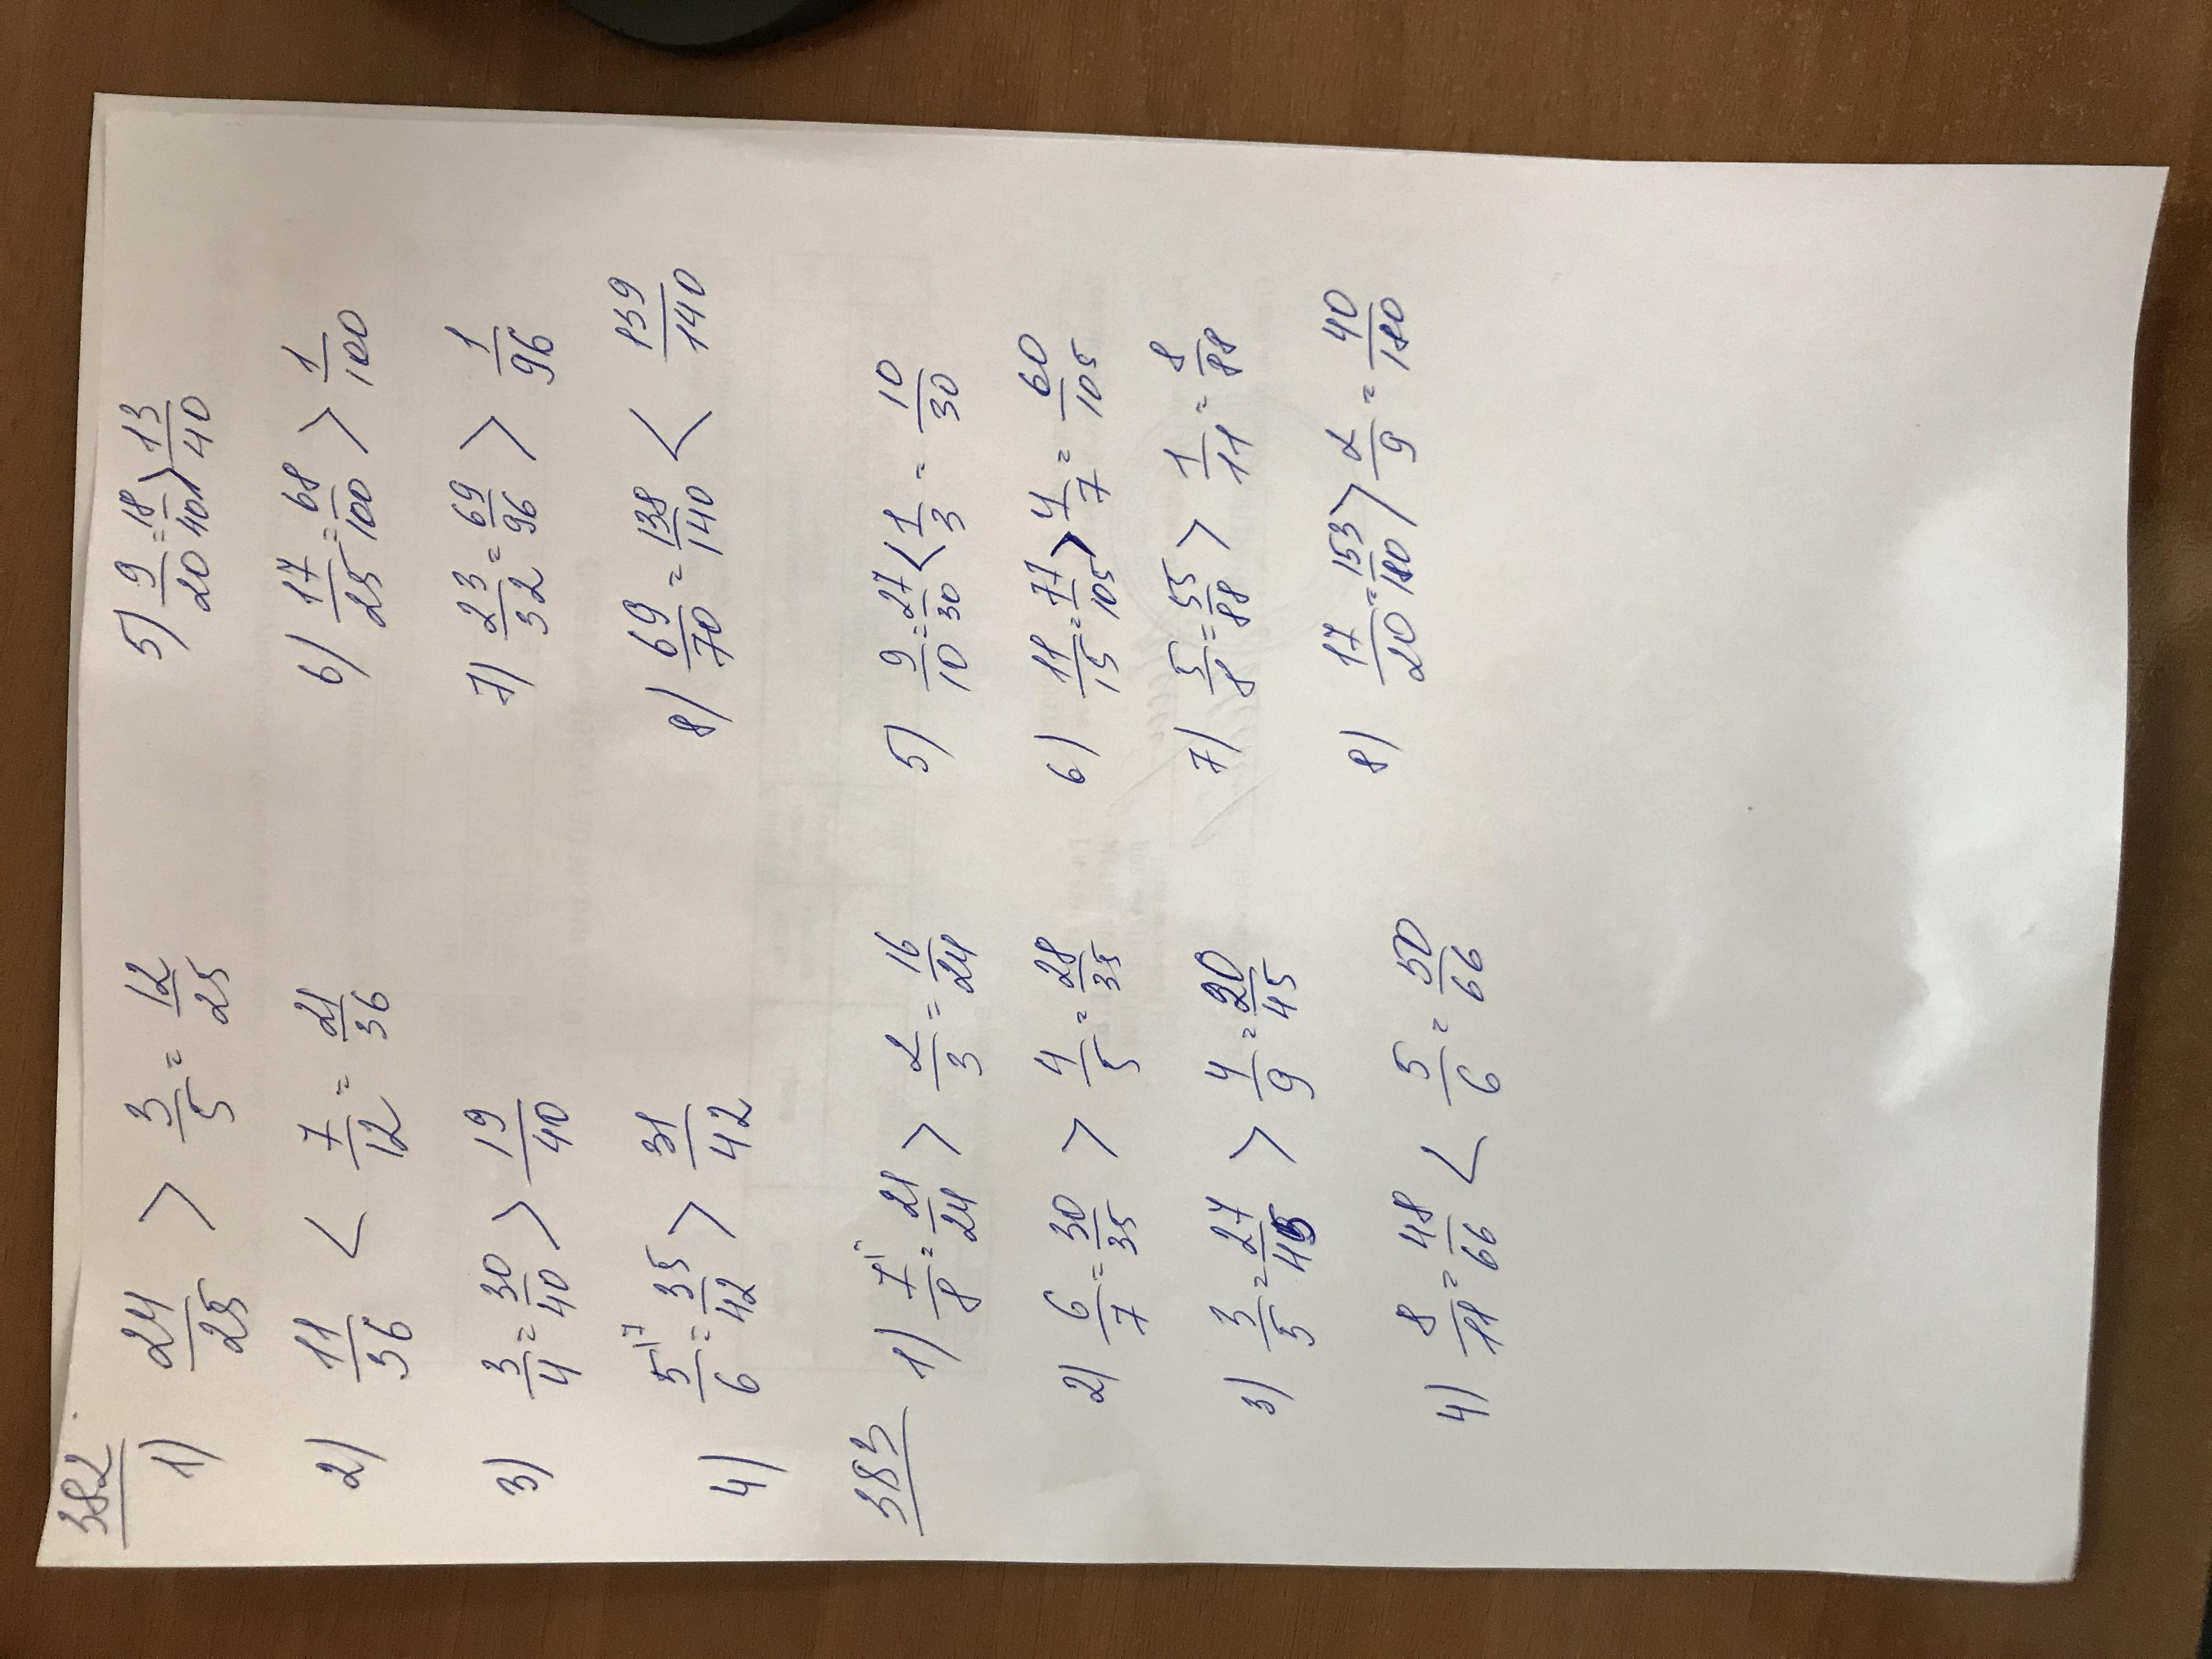 382
1) 24/25 > 3/5 = 12/25
2) 11/36 < 7/12 = 21/36
3) 3/4 = 30/40 > 19/40
4) 5/6 = 35/42 > 31/42
5) 9/20 = 18/40 > 13/40
6) 17/25 = 68/100 > 1/100
7) 23/32 = 69/96 > 1/96
8) 69/70 = 138/140 < 139/140
383
1) 7/8 = 21/24 > 2/3 = 16/24
2) 6/7 = 30/35 > 4/5 = 28/35
3) 3/5 = 27/45 > 4/9 = 20/45
4) 8/11 = 48/66 < 5/6 = 50/66
5) 9/10 = 27/30 < 1/3 = 10/30
6) 11/15 = 77/105 > 4/7 = 60/105
7) 5/8 = 55/88 > 1/11 = 8/88
8) 17/20 = 153/180 > 2/9 = 40/180